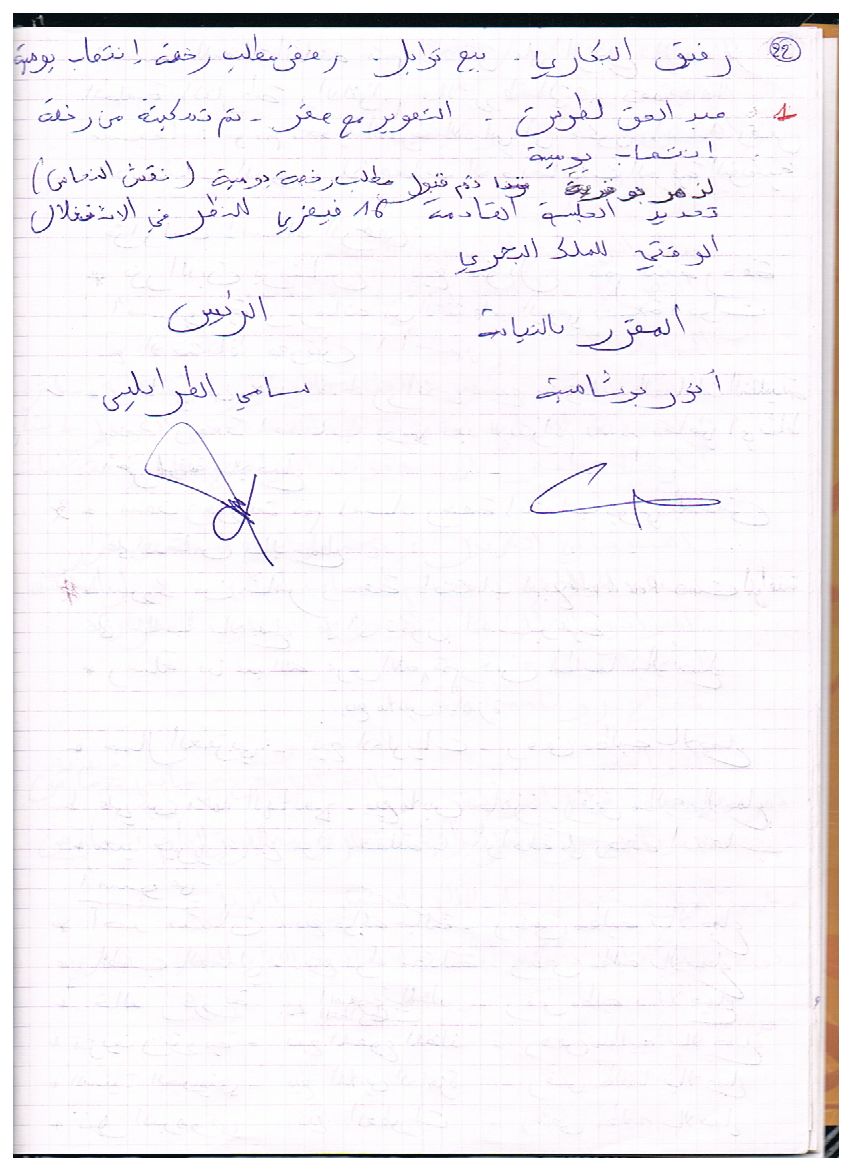 22 رفيق البكاري. بيع توابل. رفض مطلب رخصة إنتصاب يومية
1 عبد الحق لطوس. التصوير مع صقر. تم تمكينه من رخصة
انتصاب يومية
لزهر بوغرية تم قبول مطلب رخصة يومية (نقش النحاس)
تحديد الجلسة القادمة 16 فيفري للنظر في الاستغلال
الوقتي للملك البحري
المقرر بالنيابة
الرئيس
أنور بوشامية
سامي الطرابلسي